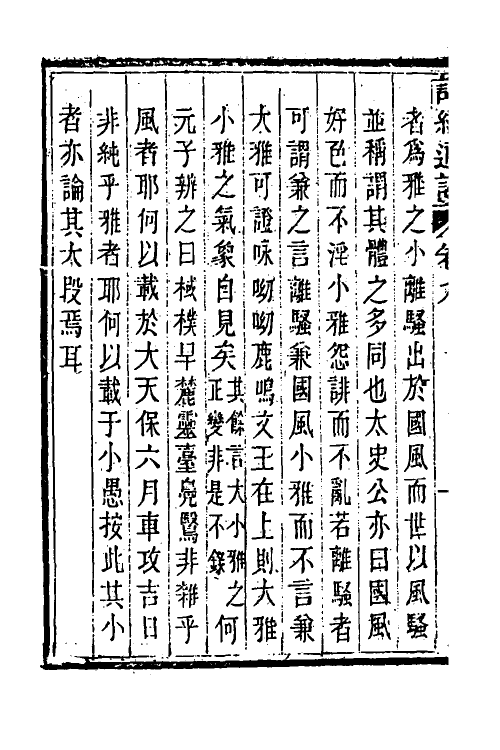 詩經通論 卷九
者爲雅之小離騷出於國風而世以風騷
並稱謂其體之多同也太史公亦曰國風
好色而不淫小雅怨誹而不亂若離騷者
可謂兼之言離騷兼國風小雅而不言兼
大雅可證咏呦呦鹿鳴文王在上則大雅
小雅之氣象自見矣其餘言大小雅之何正變非是不錄
元子辨之曰棫樸旱麓靈臺鳧鷖非雜乎
風者耶何以載於大天保六月車攻吉日
非純乎雅者耶何以載于小愚按此其小
者亦論其大段焉耳